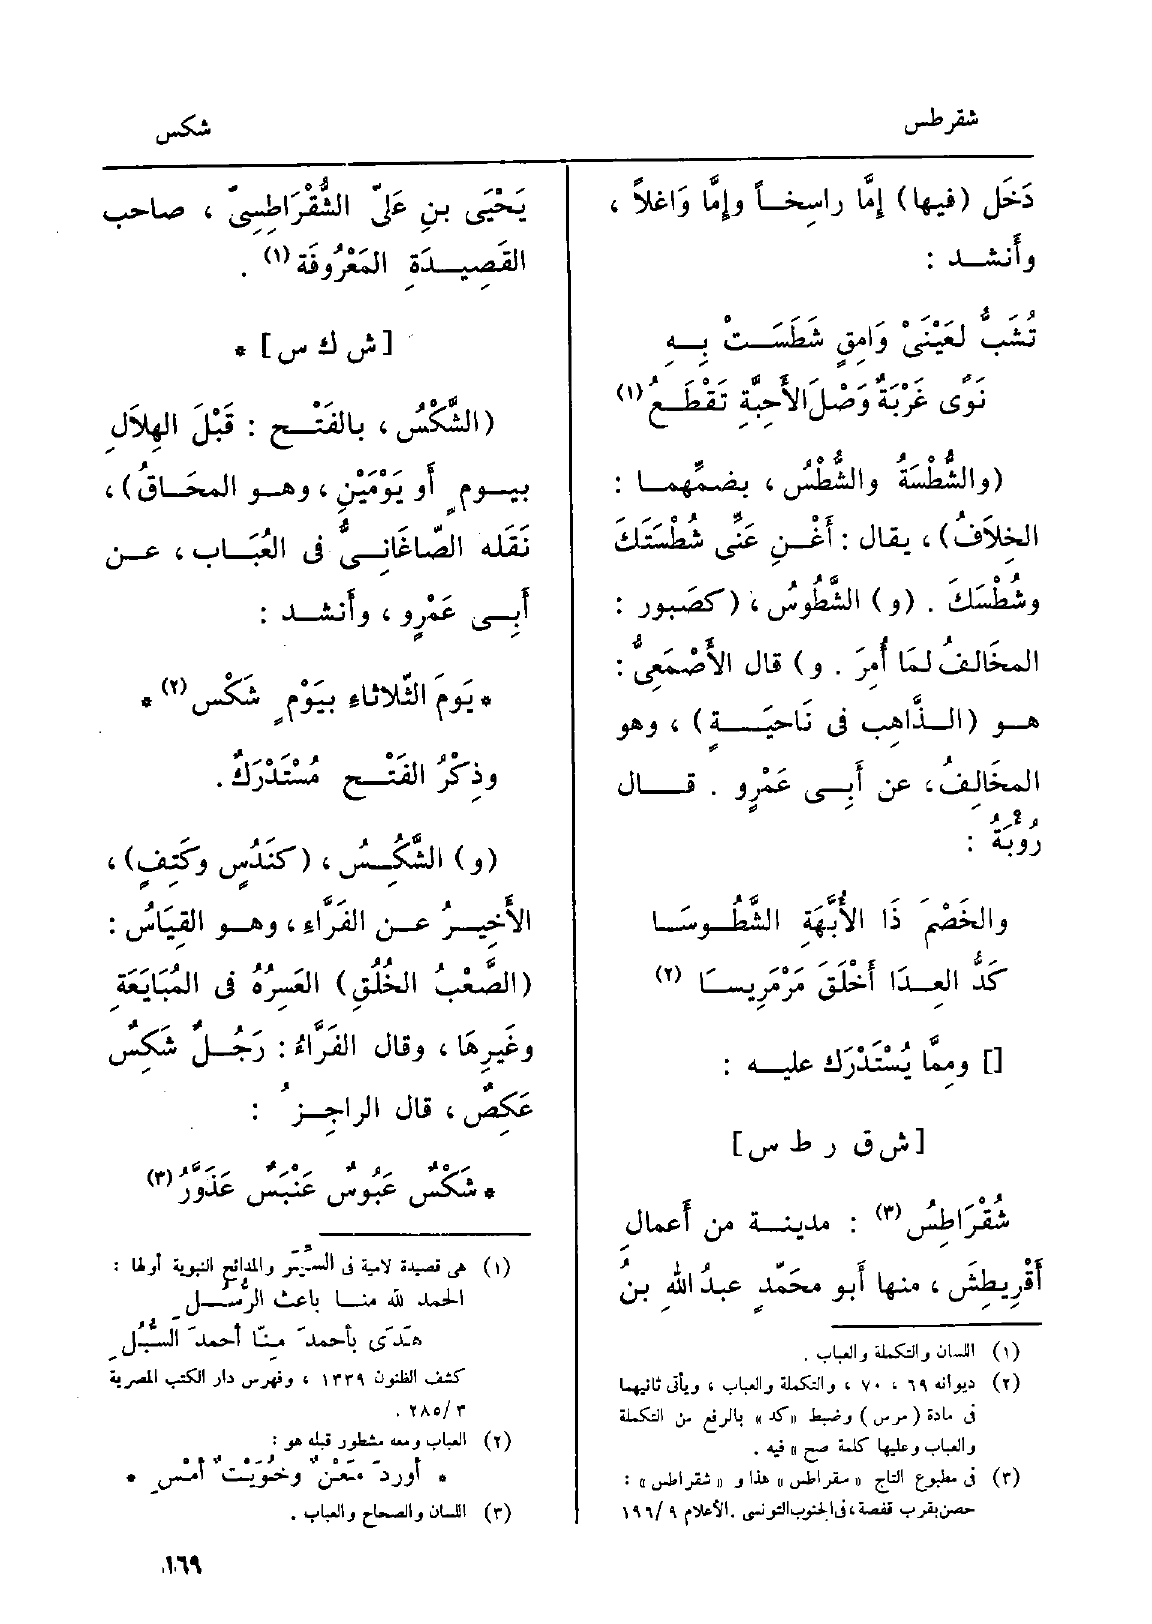 شقرطس
شكس
دَخَل (فيها) إِمَّا راسِخاً وإِمَّا وَاغلاً ،
وأَنشد :
تُشَبُّ لعَيْنَىْ وَامِقٍ شَطَسَتْ بِهِ
نَوًى غَرْبَةٌ وَصْلَ الأَحِبَّةِ تَقْطَعُ (١)
(والشُّطْسَةُ والشُّطْسُ ، بضمِّهما :
الخِلاَفُ) ، يقال : أَغْنِ عَنِّى شُطْسَتَكَ
وشُطْسَكَ . (و) الشَّطُوسُ ، (كصَبور :
المخَالفُ لمَا أُمِرَ . و) قال الأَصْمَعِىُّ :
هو (الذَّاهِب فى نَاحِيَةٍ) ، وهو
المخَالِفُ، عن أَبِى عَمْرٍو . قال
رُوبَةُ :
والخَصْمَ ذَا الأُبَّهَةِ الشَّطُوسَا
كَدُّ العِدَا أَخْلَقَ مَرْمَرِيسَا (٢)
[] ومِمَّا يُسْتَدْرَك عليه :
[ ش ق ر ط س ]
شُقْرَاطِسُ (٣) : مدينة من أَعمالِ
أَقْرِيطِشَ ، منها أَبو محَمَّدٍ عبدُ اللهِ بنُ
(١) اللسان والتكملة والعباب .
(٢) ديوانه ٦٩ ، ٧٠ ، والتكملة والعباب ، ويأتى ثانيهما
فى مادة (مرس) وضبط «كد» بالرفع من التكملة
والعباب وعليها كلمة صح » فيه .
(٣) فى مطبوع التاج «سقراطس» هذا و «شقراطس» :
حصن بقرب قفصة ، فى الجنوب التونسى . الأعلام ٩ /١٩٦
يَحْيَى بنِ عَلىّ الشُّقْرَاطِسِىّ ، صاحب
القَصِيدَةِ المَعْرُوفَة (١) .
[ ش ك س ] *
(الشَّكْسُ ، بالفَتْح : قَبْلَ الهِلاَلِ
بيومٍ أَو يَوْمَيْنِ ، وهو المحَاقُ) ،
نَقَله الصّاغَانِىُّ فى العُبَاب ، عن
أَبِى عَمْرٍو ، وأَنشد :
* يَومَ الثّلاثاء بيَوْمٍ شَكْس (٢) *
وذِكْرُ الفَتْح مُسْتَدْرَكٌ .
(و) الشَّكُسُ ، (كنَدُسٍ وكَتِفٍ) ،
الأَخِيرُ عن الفَرَّاءِ ، وهو القِيَاسُ :
(الصَّعْبُ الخُلُقِ) العَسِرُهُ فى المُبَايَعَةِ
وغَيرِهَا ، وقال الفَرَّاءُ : رَجُلٌ شَكِسٌ
عَكِصٌ ، قال الراجِزُ :
* شَكْسٌ عَبُوسٌ عَنْبَسٌ عَذَوَّرُ (٣)
(١) هى قصيدة لامية فى السِّيَرِ والمدائح النبوية أولها :
الحمد لله منا باعث الرُّسُلِ
هَدَى بأحمدَ مِنّا أحمدَ السُّبُلِ
كشف الظنون ١٣٣٩ ، وفهرس دار الكتب المصرية
٣ /٢٨٥ .
(٢) العباب ومعه مشطور قبله هو :
* أوردَ مَعْنٌ وخُوَيْتٌ أمْسِ *
(٣) اللسان والصحاح والعباب .
١٦٩